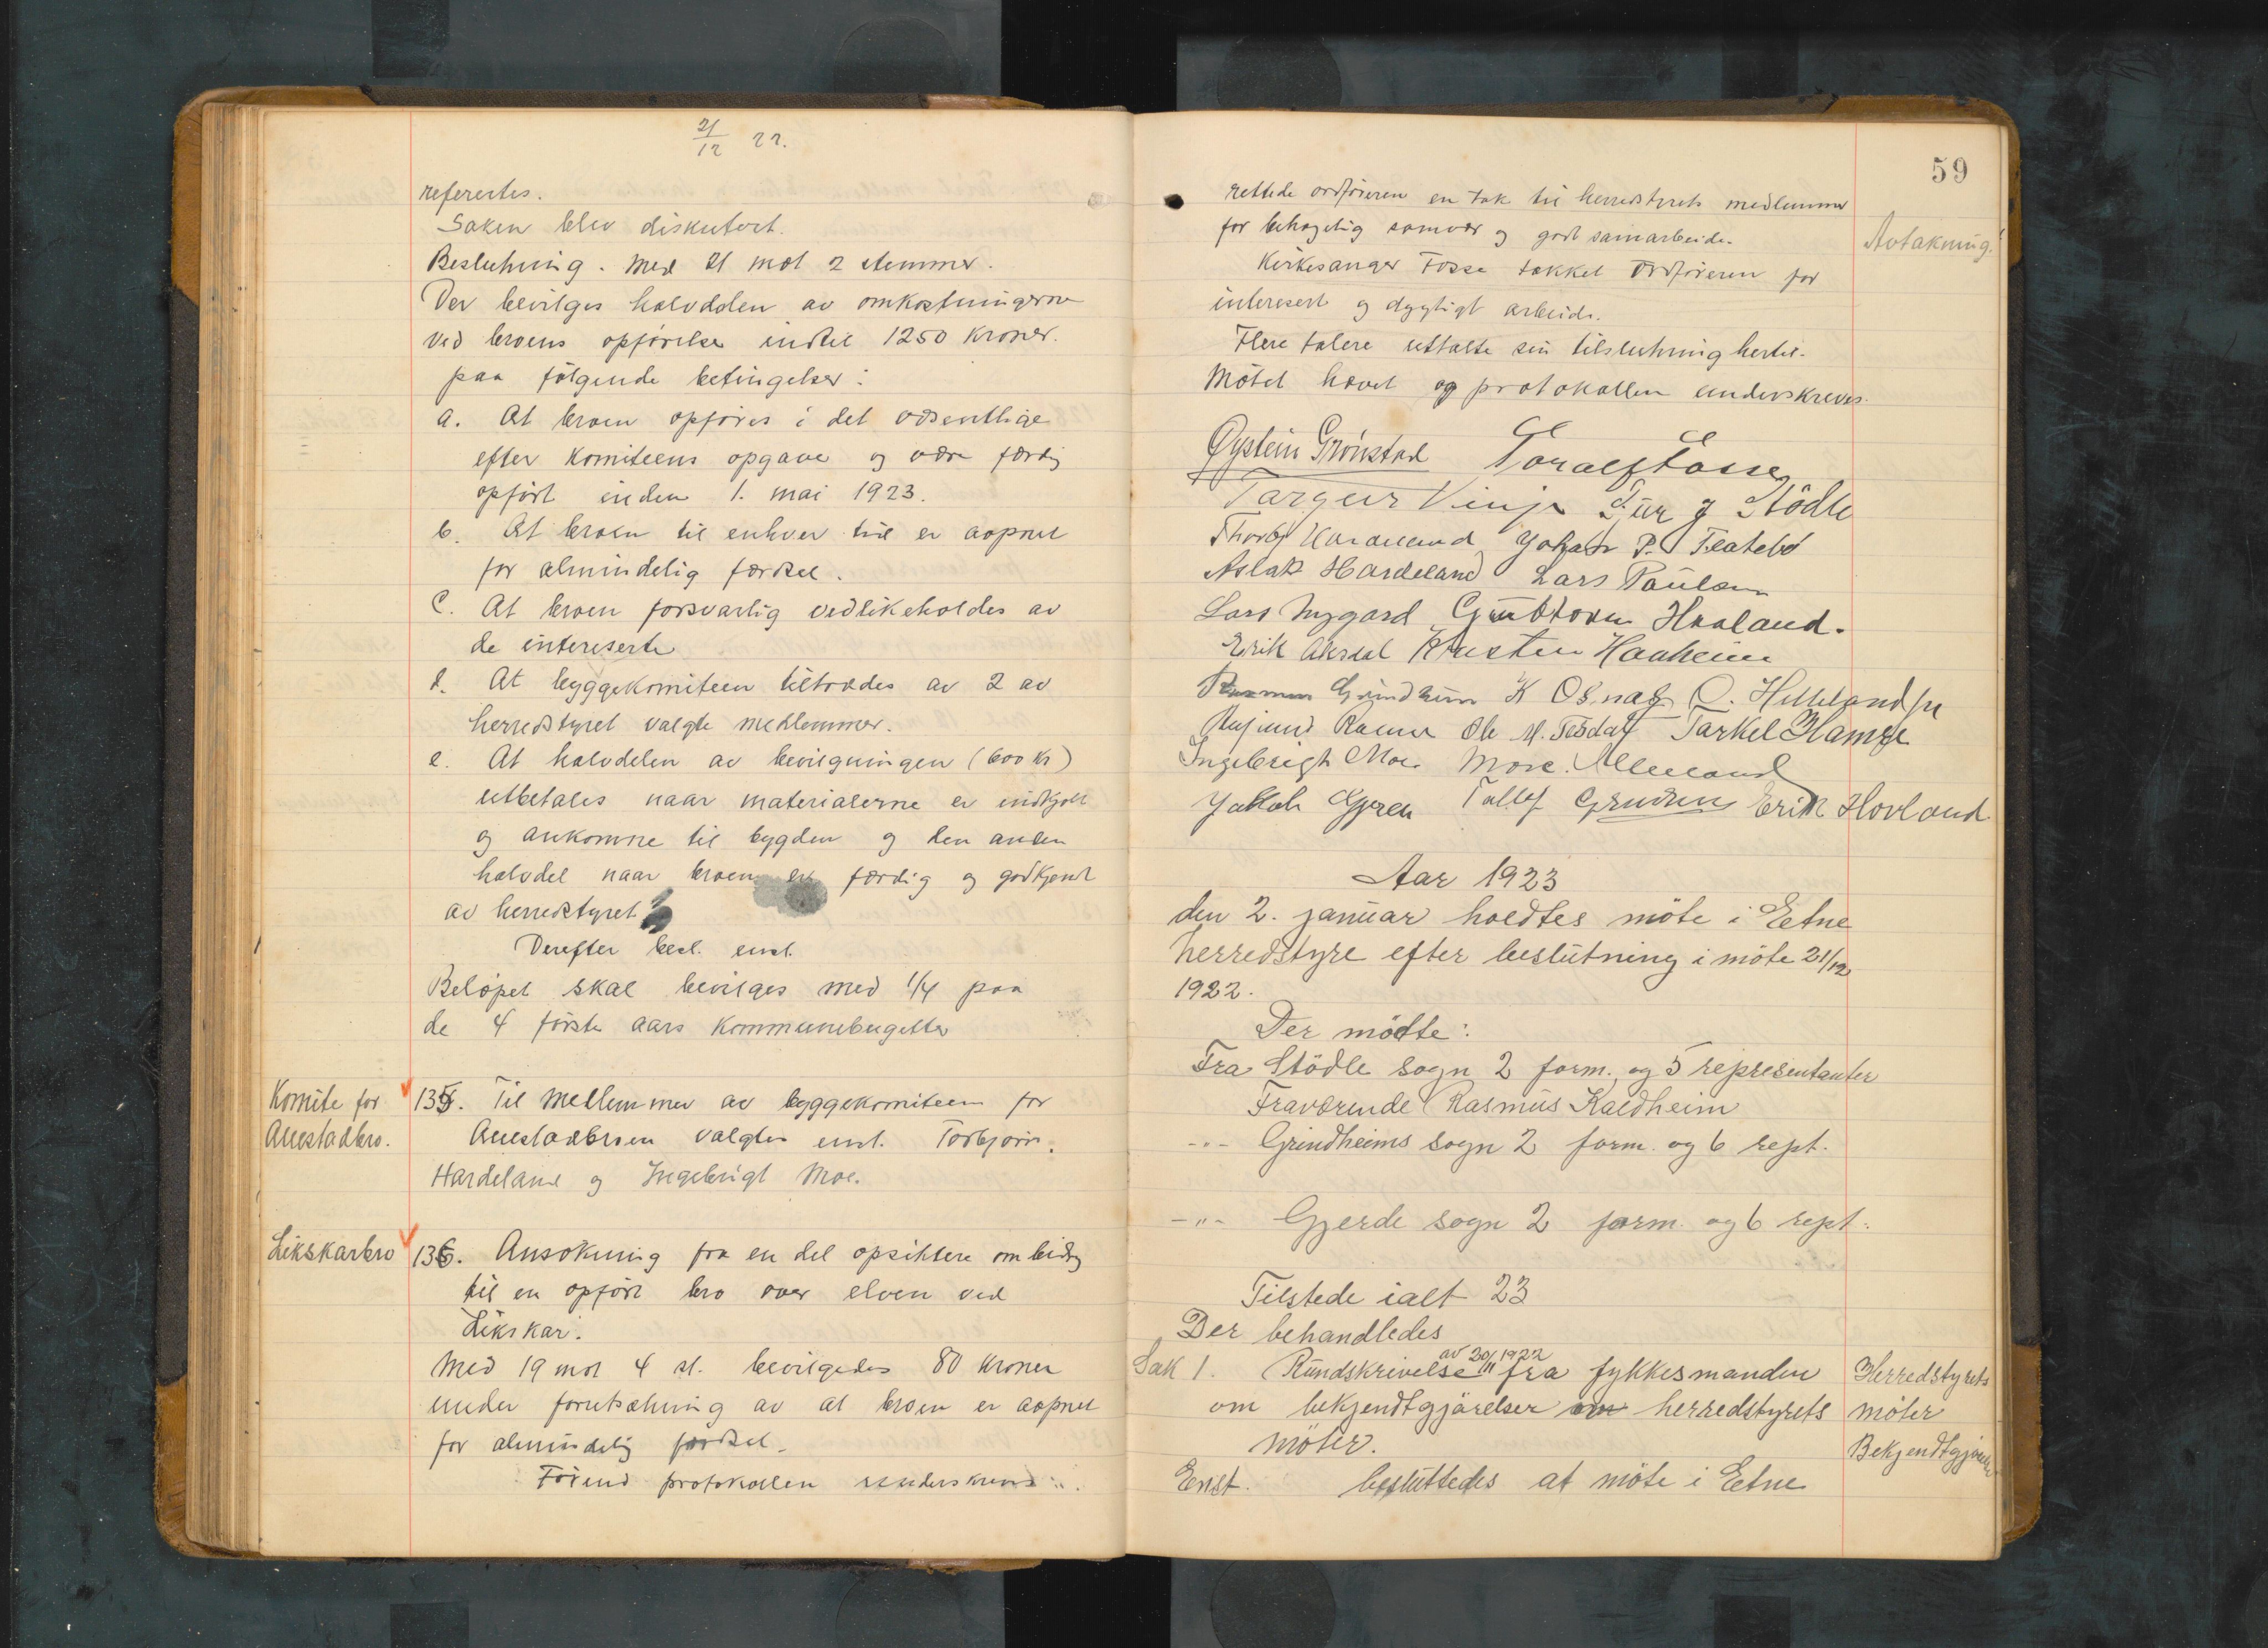 21/12 22.
referertes.
Saken blev diskutert.
Beslutning. Med 21 mot 2 stemmer.
Der bevilges halvdelen av omkostningerne
ved broens opförelse indtil 1250 kroner.
paa fölgende betingelser:
a. At broen opföres i det væsentlige
efter komiteens opgave og være færdig
opfört inden 1. mai 1923.
b. At broen til enhver tid er aapnet
for almindelig færdsel.
c. At broen forsvarlig vedlikeholdes av
de intereserte
d. At byggekomiteen tiltrædes av 2 av
herredstyret valgte medlemmer.
e. At halvdelen av bevilgningen (600 kr)
utbetales naar materialerne er indkjøbt
og ankomne til bygden og den anden
halvdel naar broen er færdig og godkjent
av herredstyret
Derefter besl. enst.
Belöpet skal bevilges med 1/4 paa
de 4 förste aars kommunebugetter
Komite for
Allestadbro.
135. Til medlemmer av byggekomiteen for
Allestadbroen valgtes enst. Torbjörn
Hardeland og Ingebrigt Moe.
Likskarbro
136. Ansökning fra en del opsittere om bidrag
til en opfört bro over elven ved
Likskar.
Med 19 mot 4 st. bevilgedes 80 kroner
under forutsætning av at broen er aapnet
for almindelig færdsel.
Förend protokollen underskreves
59
rettede ordföreren en tak til herredstyrets medlemmer
for behagelig samvær og godt samarbeide.
Avtakning.
Kirkesanger Fosse takket Ordföreren for
interesert og dygtigt arbeide.
Flere talere uttalte sin tilslutning hertil.
Mötet hævet og protokollen underskreves.
Øystein Grönstad Toralf Fosse
Targeir Vinje J Stödle
Thorbj Hardeland Johan P. Flatebö
Aslak Hardeland Lars Paulsen
Lars Nygard Guttorm Haaland.
Erik Kristen Haaheim
Rasmus Grindheim K Osnag O. Hilleland
Ramm Ole M. Tesdal Tarkel Hamre
Ingebrigt Moe
Jakob Tallef Grindheim Erik Hovland
Aar 1923
den 2. januar holdtes möte i Etne
herredstyre efter beslutning i möte 21/12
1922.
Der mödte:
Fra Stödle sogn 2 form. og 5 representanter
Fraværende Rasmus Kaldheim
-"- Grindheims sogn 2 form. og 6 rept.
-"- Gjerde sogn 2 form. og 6 rept.
Tilstede ialt 23
Der behandledes
Sak 1. Rundskrivelse av 20/11 1922 fra fylkesmanden
om bekjendtgjörelser om herredstyrets
möter.
Herredstyrets
möter
Bekjendtgjörelse
Enst. besluttedes at möte i Etne